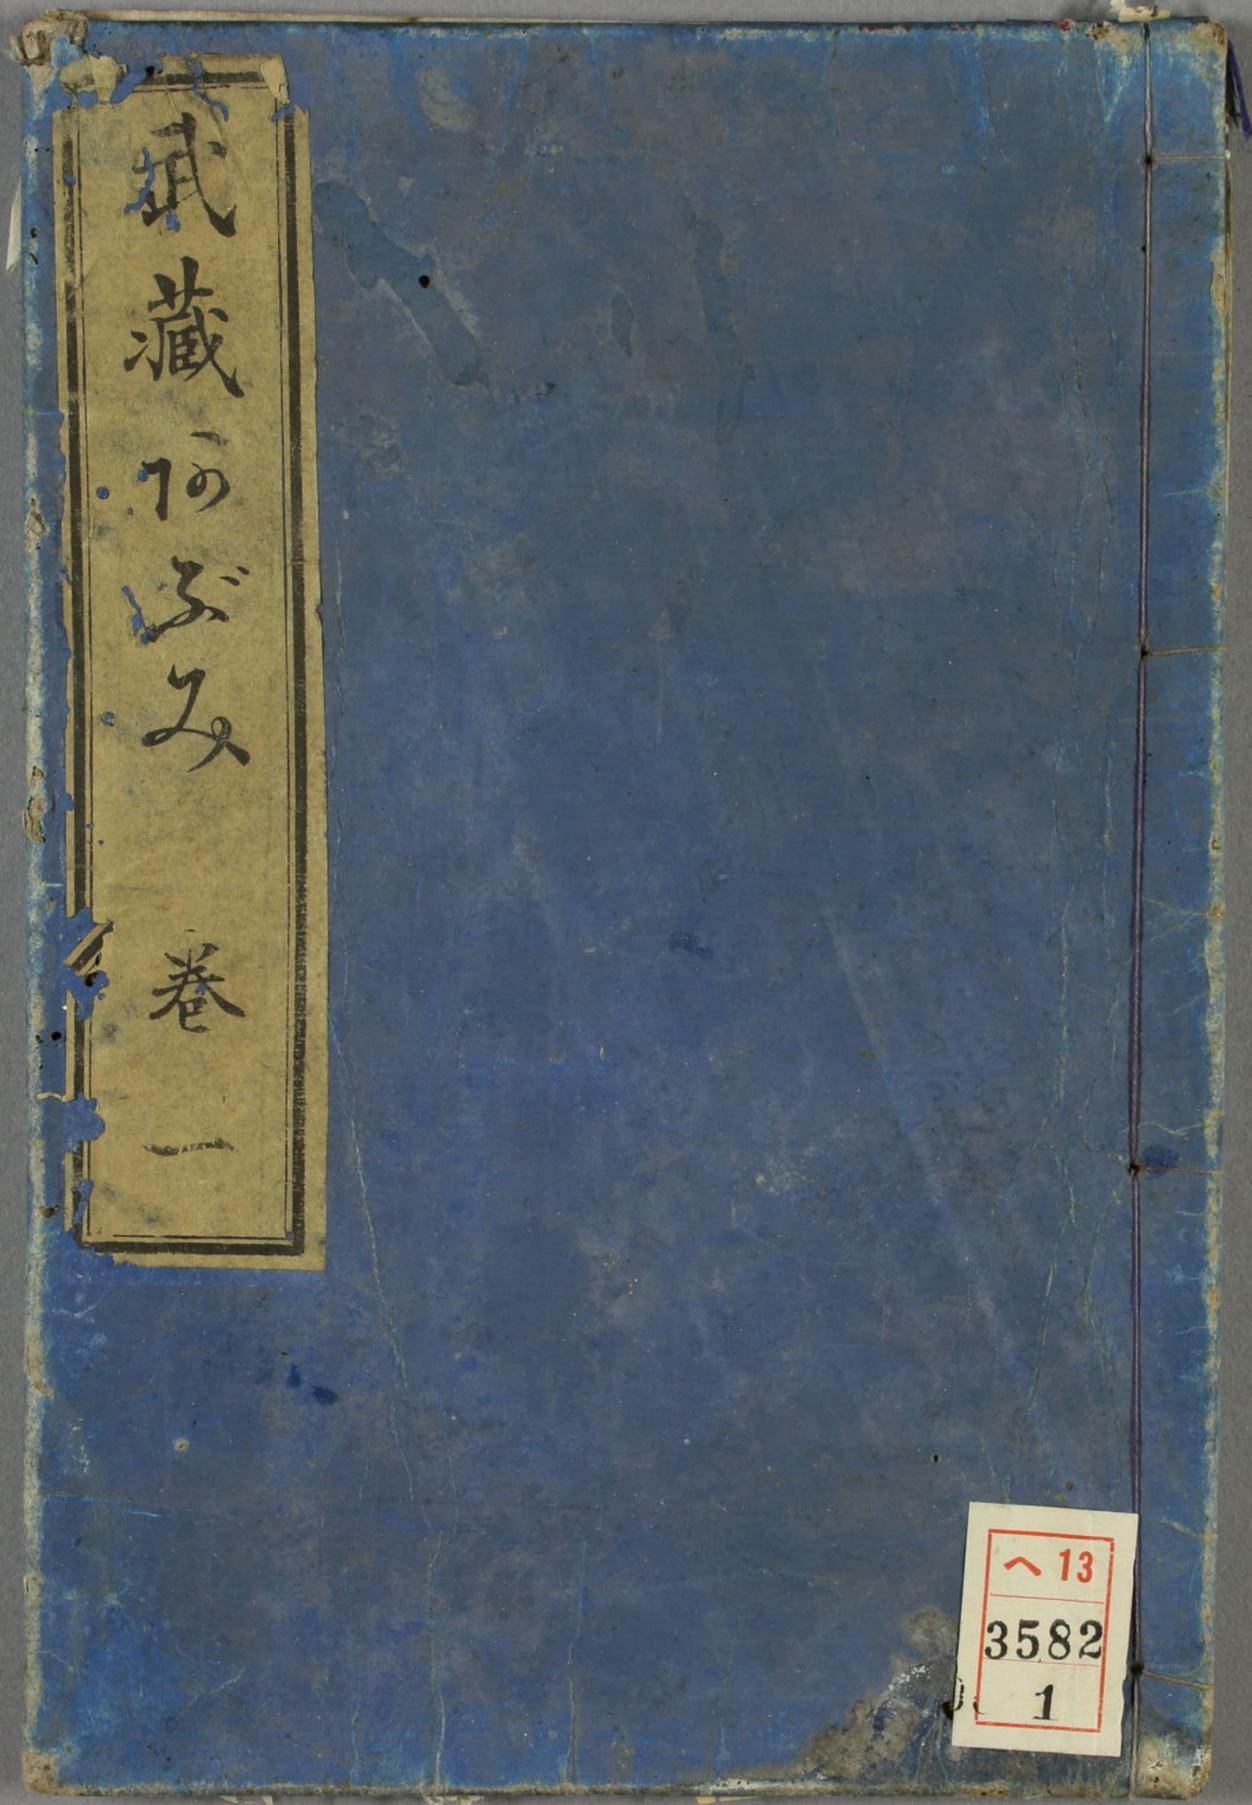 武藏あぶみ 巻一
ヘ13
3582
1